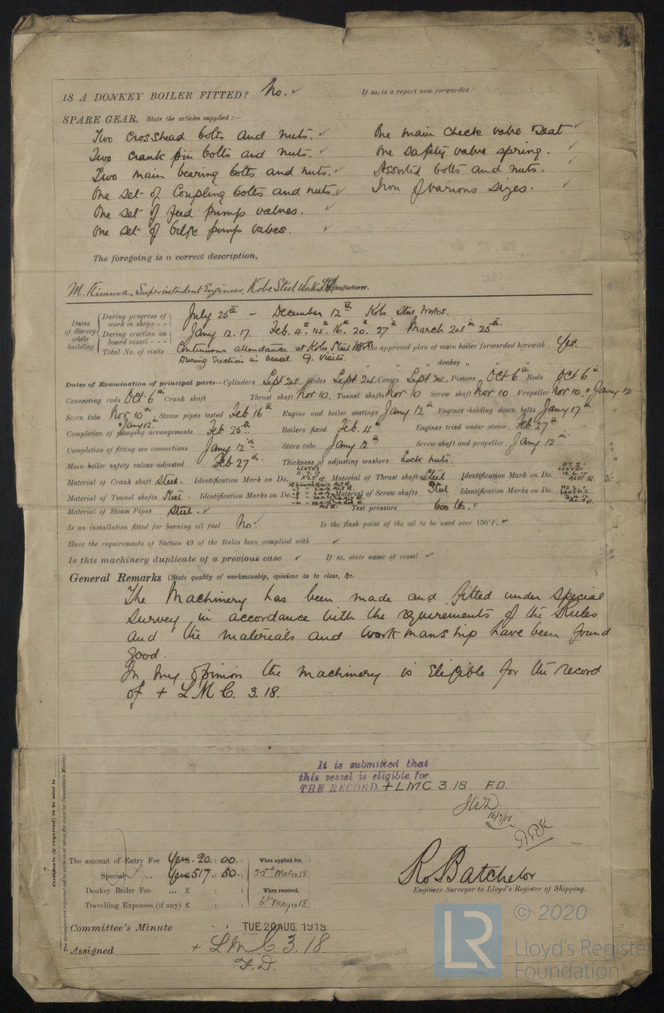 IS A DONKEY BOILER FITTED? No. ✓ If so, is a report now forwarded?
SPARE GEAR. State the articles supplied:—
Two crosshead bolts and nuts. ✓ One main check valve Seat ✓
Two crank pin bolts and nuts. ✓ One safety valve spring. ✓
Two main bearing bolts and nuts. ✓ Assorted bolts and nuts. ✓
One set of Coupling bolts and nuts ✓ Iron of various sizes. ✓
One set of feed pumps valves. ✓
One set of bilge pump valves. ✓
The foregoing is a correct description,
Superintendent Engineer, Kobe Steel Works Manufacturer.
Dates of Survey while building
During progress of work in shops - - July 25th - December 12th Kobe Steel Works.
During erection on board vessel - - - Jany 12. 17. Feb. 4th 16th 20. 27th March 25th.
Total No. of visits Continuous attendance at Kobe Steel Works Is the approved plan of main boiler forwarded herewith Yes.
During Erection in vessel 9 visits. " " " donkey " " "
Dates of Examination of principal parts—Cylinders Sept 2nd. Slides Sept 2nd. Covers Sept 2nd. Pistons Oct 6th Rods Oct 6th
Connecting rods Oct 6th Crank shaft Thrust shaft Nov 10. Tunnel shafts Nov 10 Screw shaft Nov 10 Propeller Nov 10. & Jany 12
Stern tube Nov 10th & Jany 12th Steam pipes tested Feb 16th Engine and boiler seatings Jany 12th Engines holding down bolts Jany 17th
Completion of pumping arrangements Feb 25th Boilers fixed Feb. 4th Engines tried under steam Feb 27th
Completion of fitting sea connections Jany 12th Stern tube Jany 12th Screw shaft and propeller Jany 12th
Main boiler safety valves adjusted Feb 27th. Thickness of adjusting washers Lock nuts.
Material of Crank shaft Steel. Identification Mark on Do. Material of Thrust shaft Steel Identification Mark on Do.
Material of Tunnel shafts Steel. Identification Marks on Do. Material of Screw shafts Steel Identification Marks on Do.
Material of Steam Pipes Steel. ✓ Test pressure 600 lbs. ✓
Is an installation fitted for burning oil fuel No. Is the flash point of the oil to be used over 150°F. ✓
Have the requirements of Section 49 of the Rules been complied with ✓
Is this machinery duplicate of a previous case ✓ If so, state name of vessel ✓
General Remarks (State quality of workmanship, opinions as to class, &c.
The Machinery has been made and fitted under Special
Survey in accordance with the requirements of the Rules
and the materials and workmanship have been found
good.
In my opinion the machinery is Eligible for the record
of + L.M.C. 3.18.
It is submitted that
this vessel is eligible for
THE RECORD. + LMC 3.18 F.D.
Certificate (if required) to be sent to
The amount of Entry Fee Yen. 20. : 00. : When applied for,
Special ... Yen 517. : 50. :
Donkey Boiler Fee ... £ : : When received,
Travelling Expenses (if any) £ : : 6th May 1918
R. Batchelor
Engineer Surveyor to Lloyd's Register of Shipping.
Committee's Minute TUE. 20 AUG. 1918
Assigned + L.M.C. 3.18
F.D.
LR © 2020
Lloyd's Register
Foundation